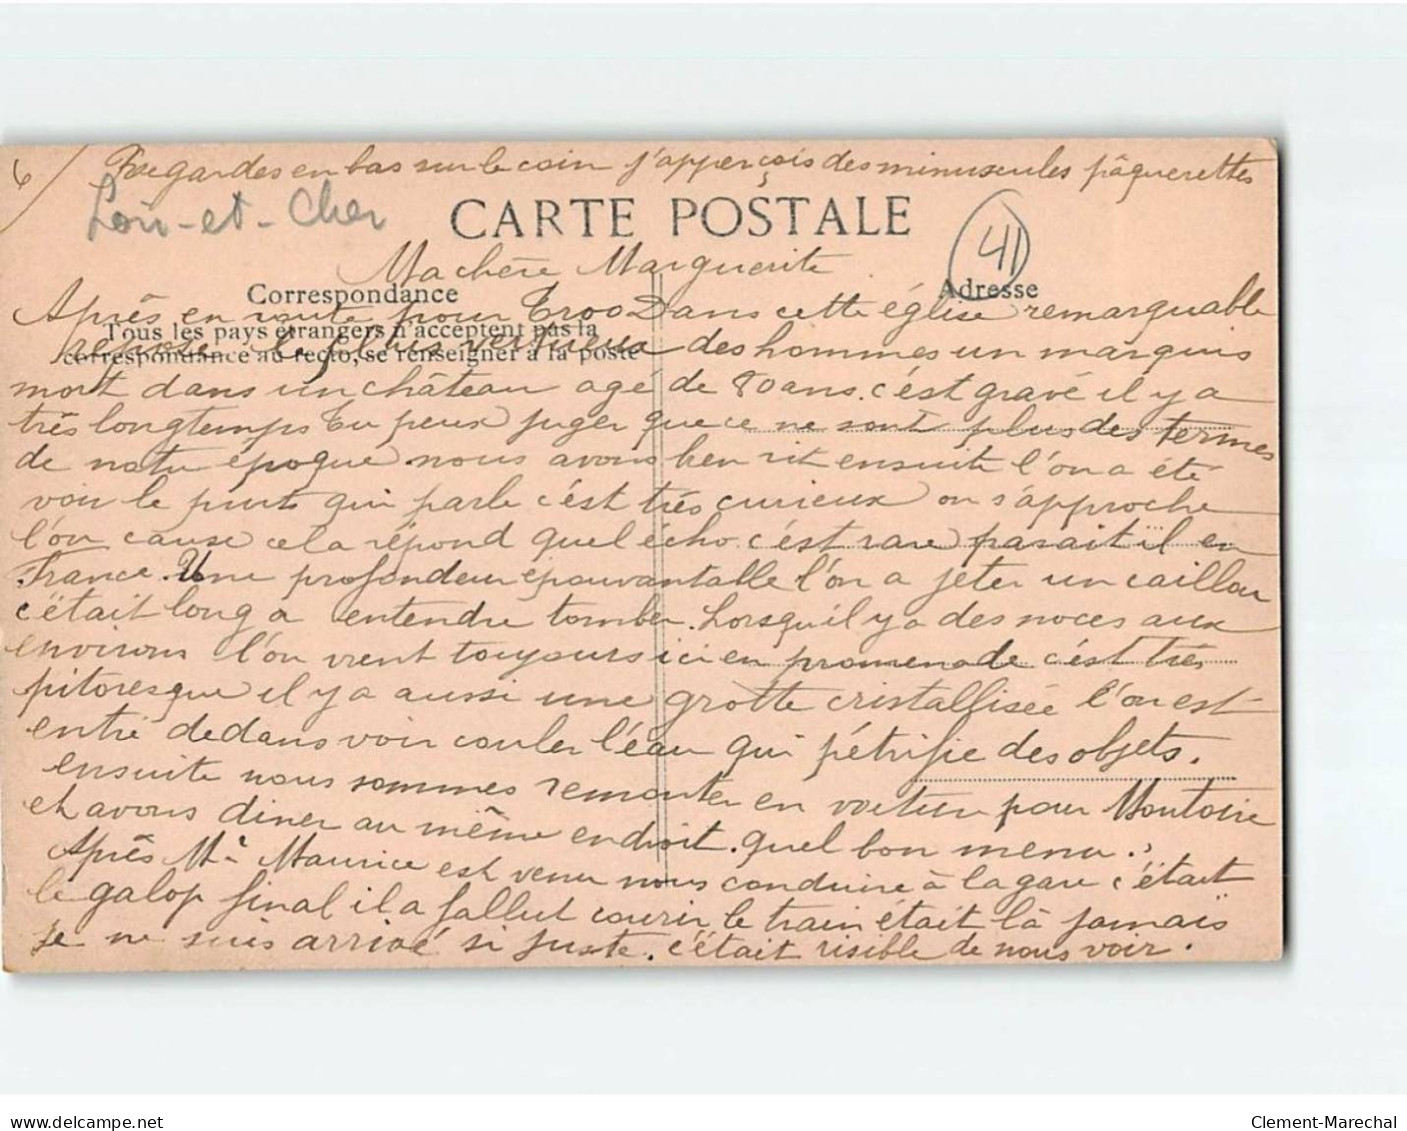 6/ Regardes en bas sur le coin j'apperçois des minuscules pâquerettes
Loir-et-Cher
CARTE POSTALE
41
Ma chère Marguerite
Correspondance
Adresse
Après en route pour Troo Dans cette église remarquable
Tous les pays étrangers n'acceptent pas la
repose le plus vertueux des hommes un marquis
correspondance au recto, se renseigner à la poste
mort dans un château age de 80 ans. c'est gravé il y a
très longtemps Tu peux juger que ce ne sont plus des termes
de notre époque. nous avons bien rit ensuite l'on a été
voir le puits qui parle c'est très curieux on s'approche
l'on cause cela répond quel écho c'est rare parait il en
France. Une profondeur épouvantable l'on a jeter un caillou
c'était long a entendre tomber. Lorsqu'il y a des noces aux
environs l'on vient toujours ici en promenade c'est très
pitoresque il y a aussi une grotte cristallisée l'on est
entré dedans voir couler l'eau qui pétrifie des objets.
ensuite nous sommes remonter en voiture pour Montoire
et avons diner au même endroit. quel bon menu.
Après Mr Maurice est venu nous conduire à la gare c'était
le galop final il a fallut courir le train était là jamais
je ne suis arrivé si juste. c'était risible de nous voir.
www.delcampe.net
Clement-Marechal